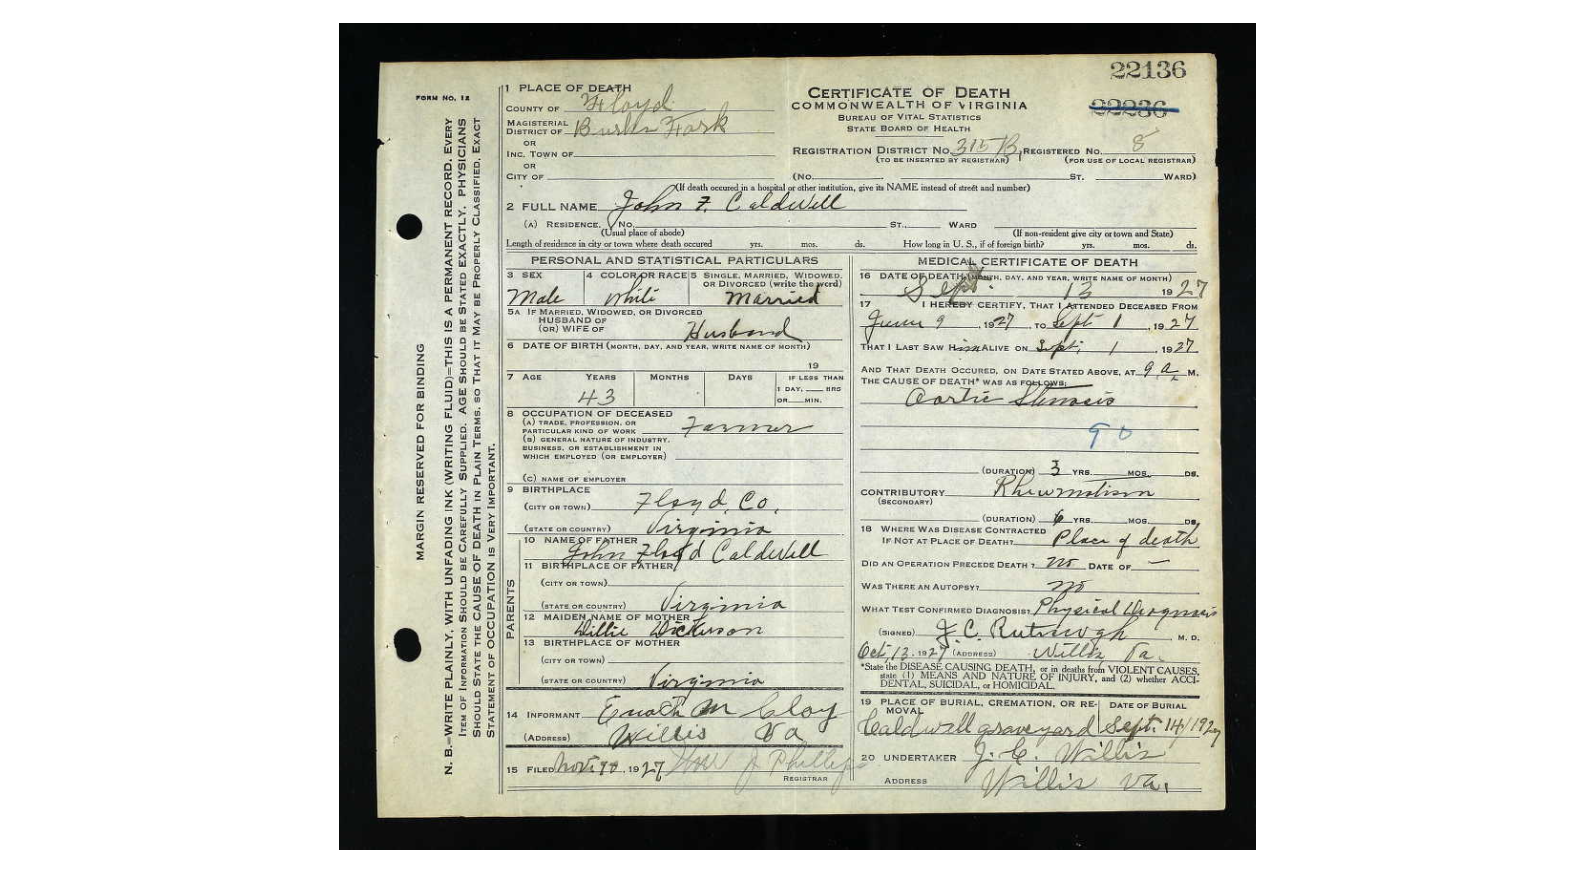 22136
22236
FORM NO. 12
MARGIN RESERVED FOR BINDING
N. B.=WRITE PLAINLY, WITH UNFADING INK (WRITING FLUID)=THIS IS A PERMANENT RECORD. EVERY
ITEM OF INFORMATION SHOULD BE CAREFULLY SUPPLIED. AGE SHOULD BE STATED EXACTLY. PHYSICIANS
SHOULD STATE THE CAUSE OF DEATH IN PLAIN TERMS, SO THAT IT MAY BE PROPERLY CLASSIFIED. EXACT
STATEMENT OF OCCUPATION IS VERY IMPORTANT.
1 PLACE OF DEATH
COUNTY OF Floyd
MAGISTERIAL
DISTRICT OF Burks Fork
OR
INC. TOWN OF
OR
CITY OF
CERTIFICATE OF DEATH
COMMONWEALTH OF VIRGINIA
BUREAU OF VITAL STATISTICS
STATE BOARD OF HEALTH
REGISTRATION DISTRICT NO. 315 B, REGISTERED NO. 8
(TO BE INSERTED BY REGISTRAR) (FOR USE OF LOCAL REGISTRAR)
(NO. ST. WARD)
(If death occured in a hospital or other institution, give its NAME instead of street and number)
2 FULL NAME John F. Caldwell
(A) RESIDENCE, NO. ST., WARD
(Usual place of abode) (If non-resident give city or town and State)
Length of residence in city or town where death occured yrs. mos. ds. How long in U. S., if of foreign birth? yrs. mos. ds.
PERSONAL AND STATISTICAL PARTICULARS
3 SEX 4 COLOR OR RACE 5 SINGLE, MARRIED, WIDOWED,
OR DIVORCED (write the word)
Male White Married
5A IF MARRIED, WIDOWED, OR DIVORCED
HUSBAND OF
(OR) WIFE OF Husband
6 DATE OF BIRTH (MONTH, DAY, AND YEAR, WRITE NAME OF MONTH)
19
7 AGE YEARS MONTHS DAYS IF LESS THAN
1 DAY, HRS
OR MIN.
43
8 OCCUPATION OF DECEASED
(A) TRADE, PROFESSION, OR
PARTICULAR KIND OF WORK Farmer
(B) GENERAL NATURE OF INDUSTRY,
BUSINESS, OR ESTABLISHMENT IN
WHICH EMPLOYED (OR EMPLOYER)
(C) NAME OF EMPLOYER
9 BIRTHPLACE
(CITY OR TOWN) Floyd, Co,
(STATE OR COUNTRY) Virginia
PARENTS
10 NAME OF FATHER
John Floyd Caldwell
11 BIRTHPLACE OF FATHER
(CITY OR TOWN)
(STATE OR COUNTRY) Virginia
12 MAIDEN NAME OF MOTHER
Dickerson
13 BIRTHPLACE OF MOTHER
(CITY OR TOWN)
(STATE OR COUNTRY) Virginia
14 INFORMANT
(ADDRESS) Willis Va
15 FILED Nov 1927 Phillips
REGISTRAR
MEDICAL CERTIFICATE OF DEATH
16 DATE OF DEATH (MONTH, DAY, AND YEAR, WRITE NAME OF MONTH)
Sept. 13 1927
17 I HEREBY CERTIFY, THAT I ATTENDED DECEASED FROM
June 9, 1927 TO Sept 1, 1927
THAT I LAST SAW Him ALIVE ON Sept, 1, 1927
AND THAT DEATH OCCURED, ON DATE STATED ABOVE, AT 9 a M.
THE CAUSE OF DEATH* WAS AS FOLLOWS:
Aortic Stenosis
90
(DURATION) 3 YRS. MOS. DS.
CONTRIBUTORY Rheumatism
(SECONDARY)
(DURATION) 6 YRS. MOS. DS.
18 WHERE WAS DISEASE CONTRACTED
IF NOT AT PLACE OF DEATH? Place of death
DID AN OPERATION PRECEDE DEATH? no DATE OF —
WAS THERE AN AUTOPSY? no
WHAT TEST CONFIRMED DIAGNOSIS? Physical Diagnosis
(SIGNED) J. C. Rutrough M. D.
Oct, 13, 1927 (ADDRESS) Willis, Va.
*State the DISEASE CAUSING DEATH, or in deaths from VIOLENT CAUSES,
state (1) MEANS AND NATURE OF INJURY, and (2) whether ACCI-
DENTAL, SUICIDAL, or HOMICIDAL.
19 PLACE OF BURIAL, CREMATION, OR RE-
MOVAL DATE OF BURIAL
Caldwell graveyard Sept. 14, 1927
20 UNDERTAKER J. C. Willis
ADDRESS Willis Va.